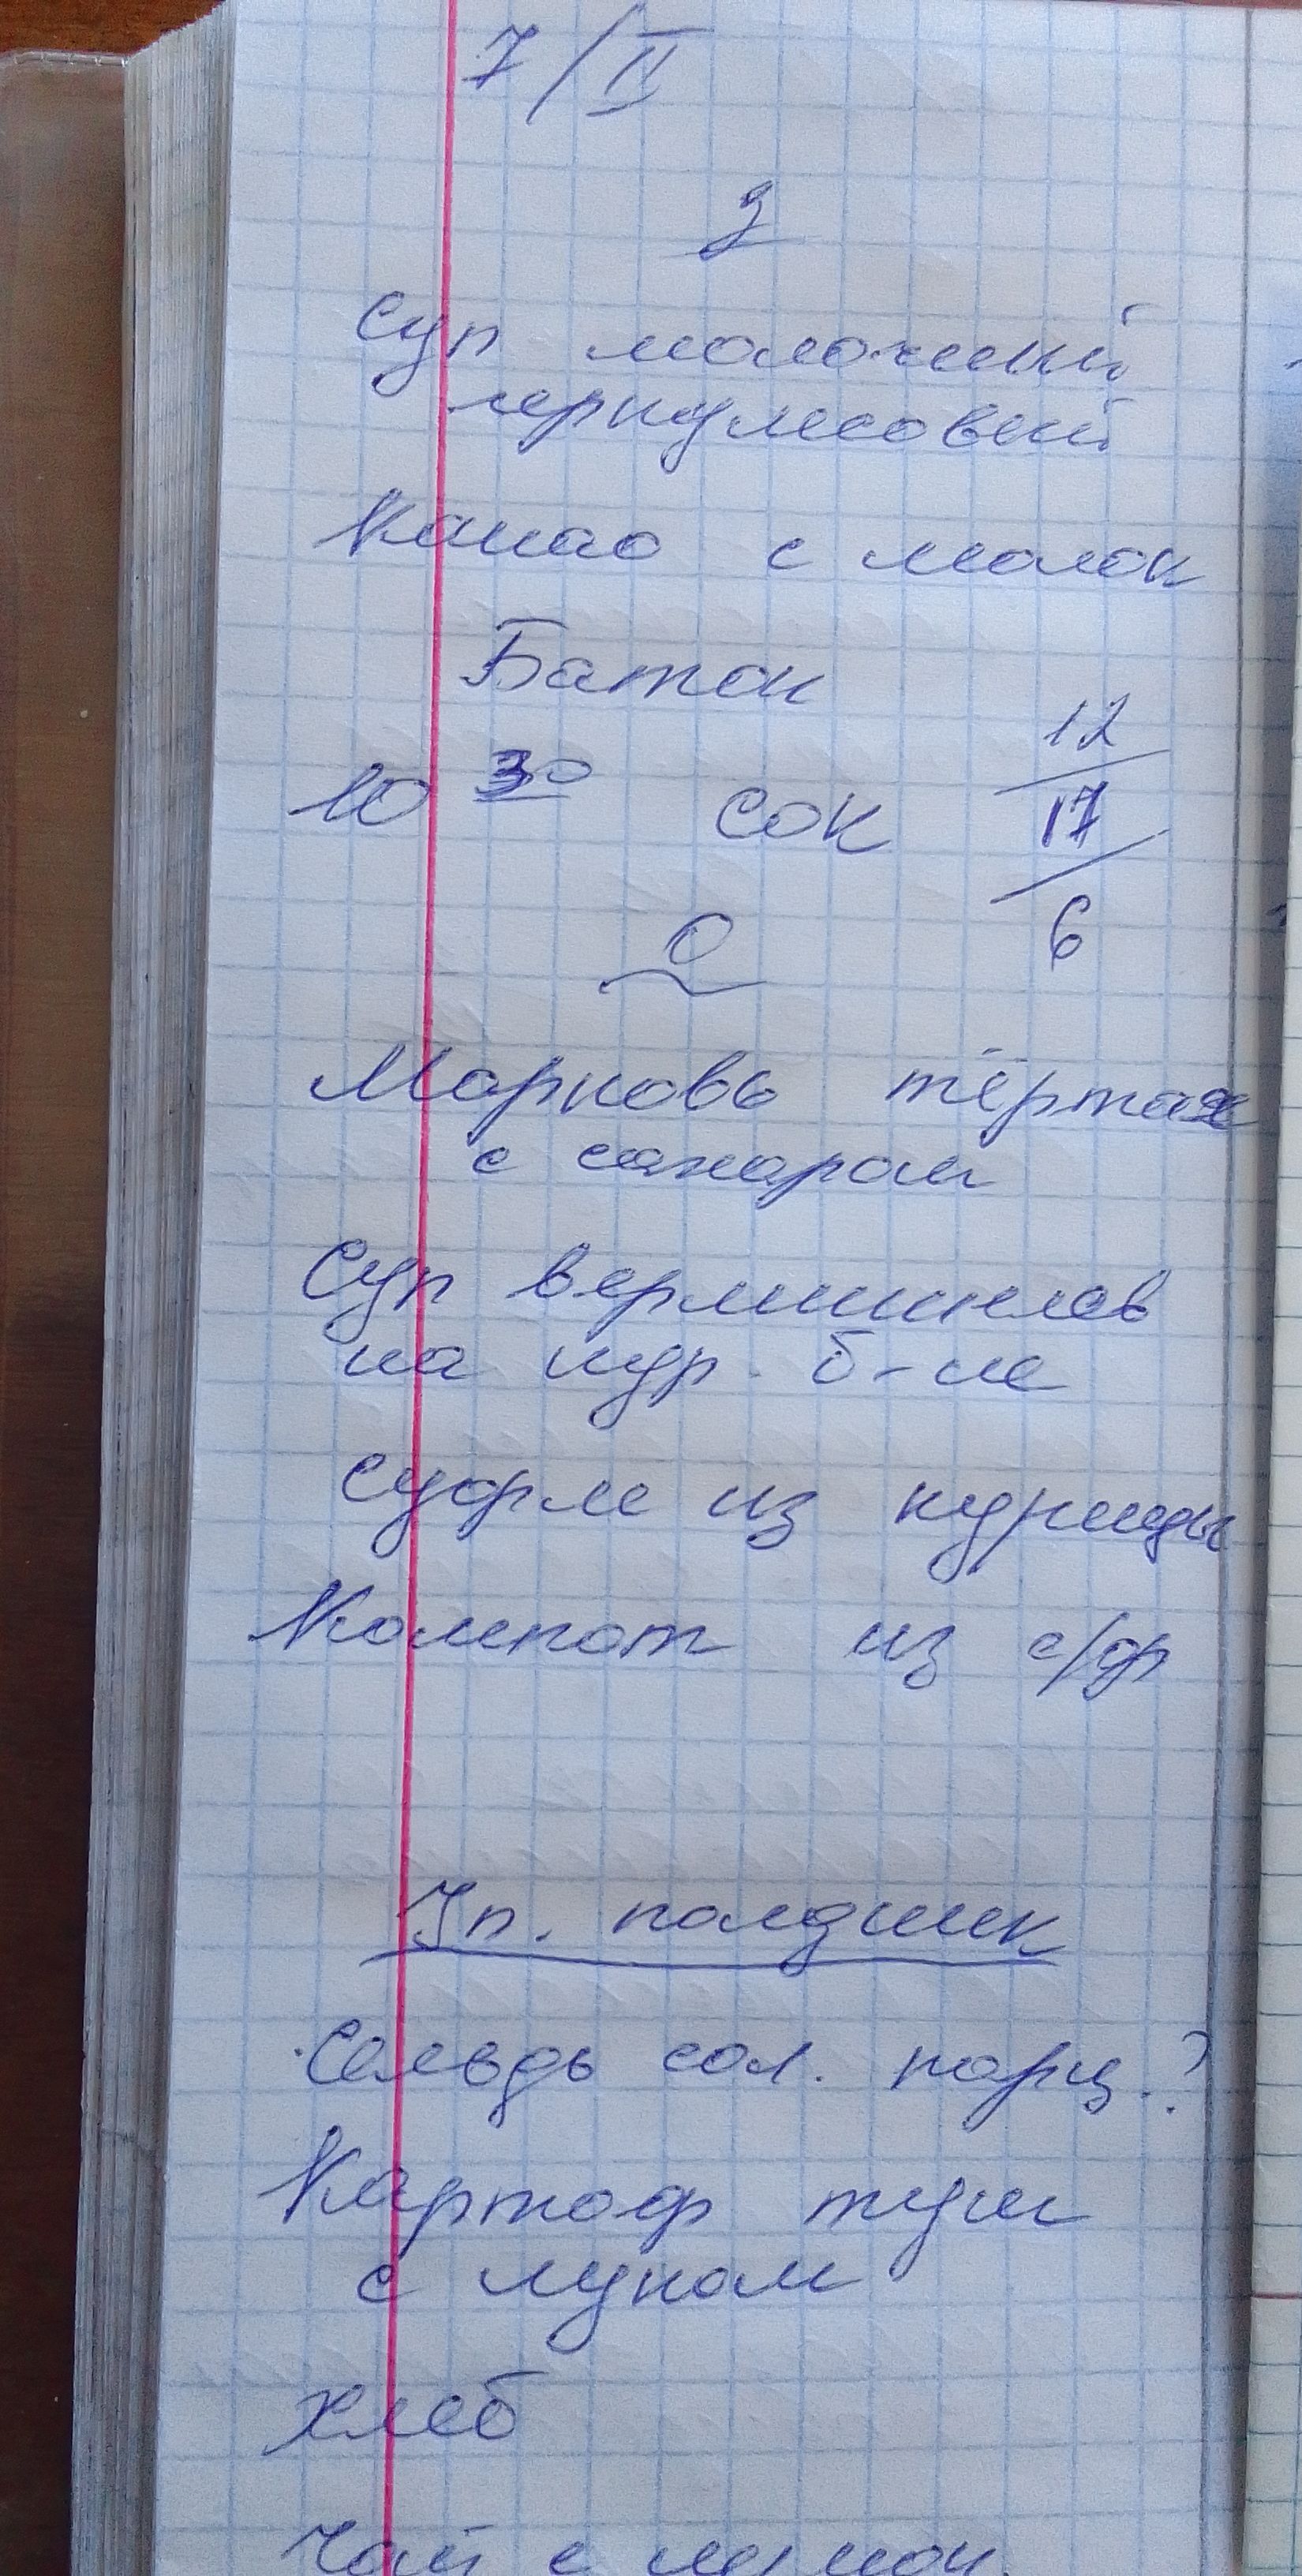 7/II
З
Суп молочный
геркулесовый
Какао с молок
Батон
12
10 30 сок 17
6
О
Морковь тёртая
с сахаром
Суп вермишелев
на кур. б-не
Суфле из курицы
Компот из с/ф
Уп. полдник
Сельдь сол. порц.?
Картоф туш
с луком
Хлеб
Чай с лимон.